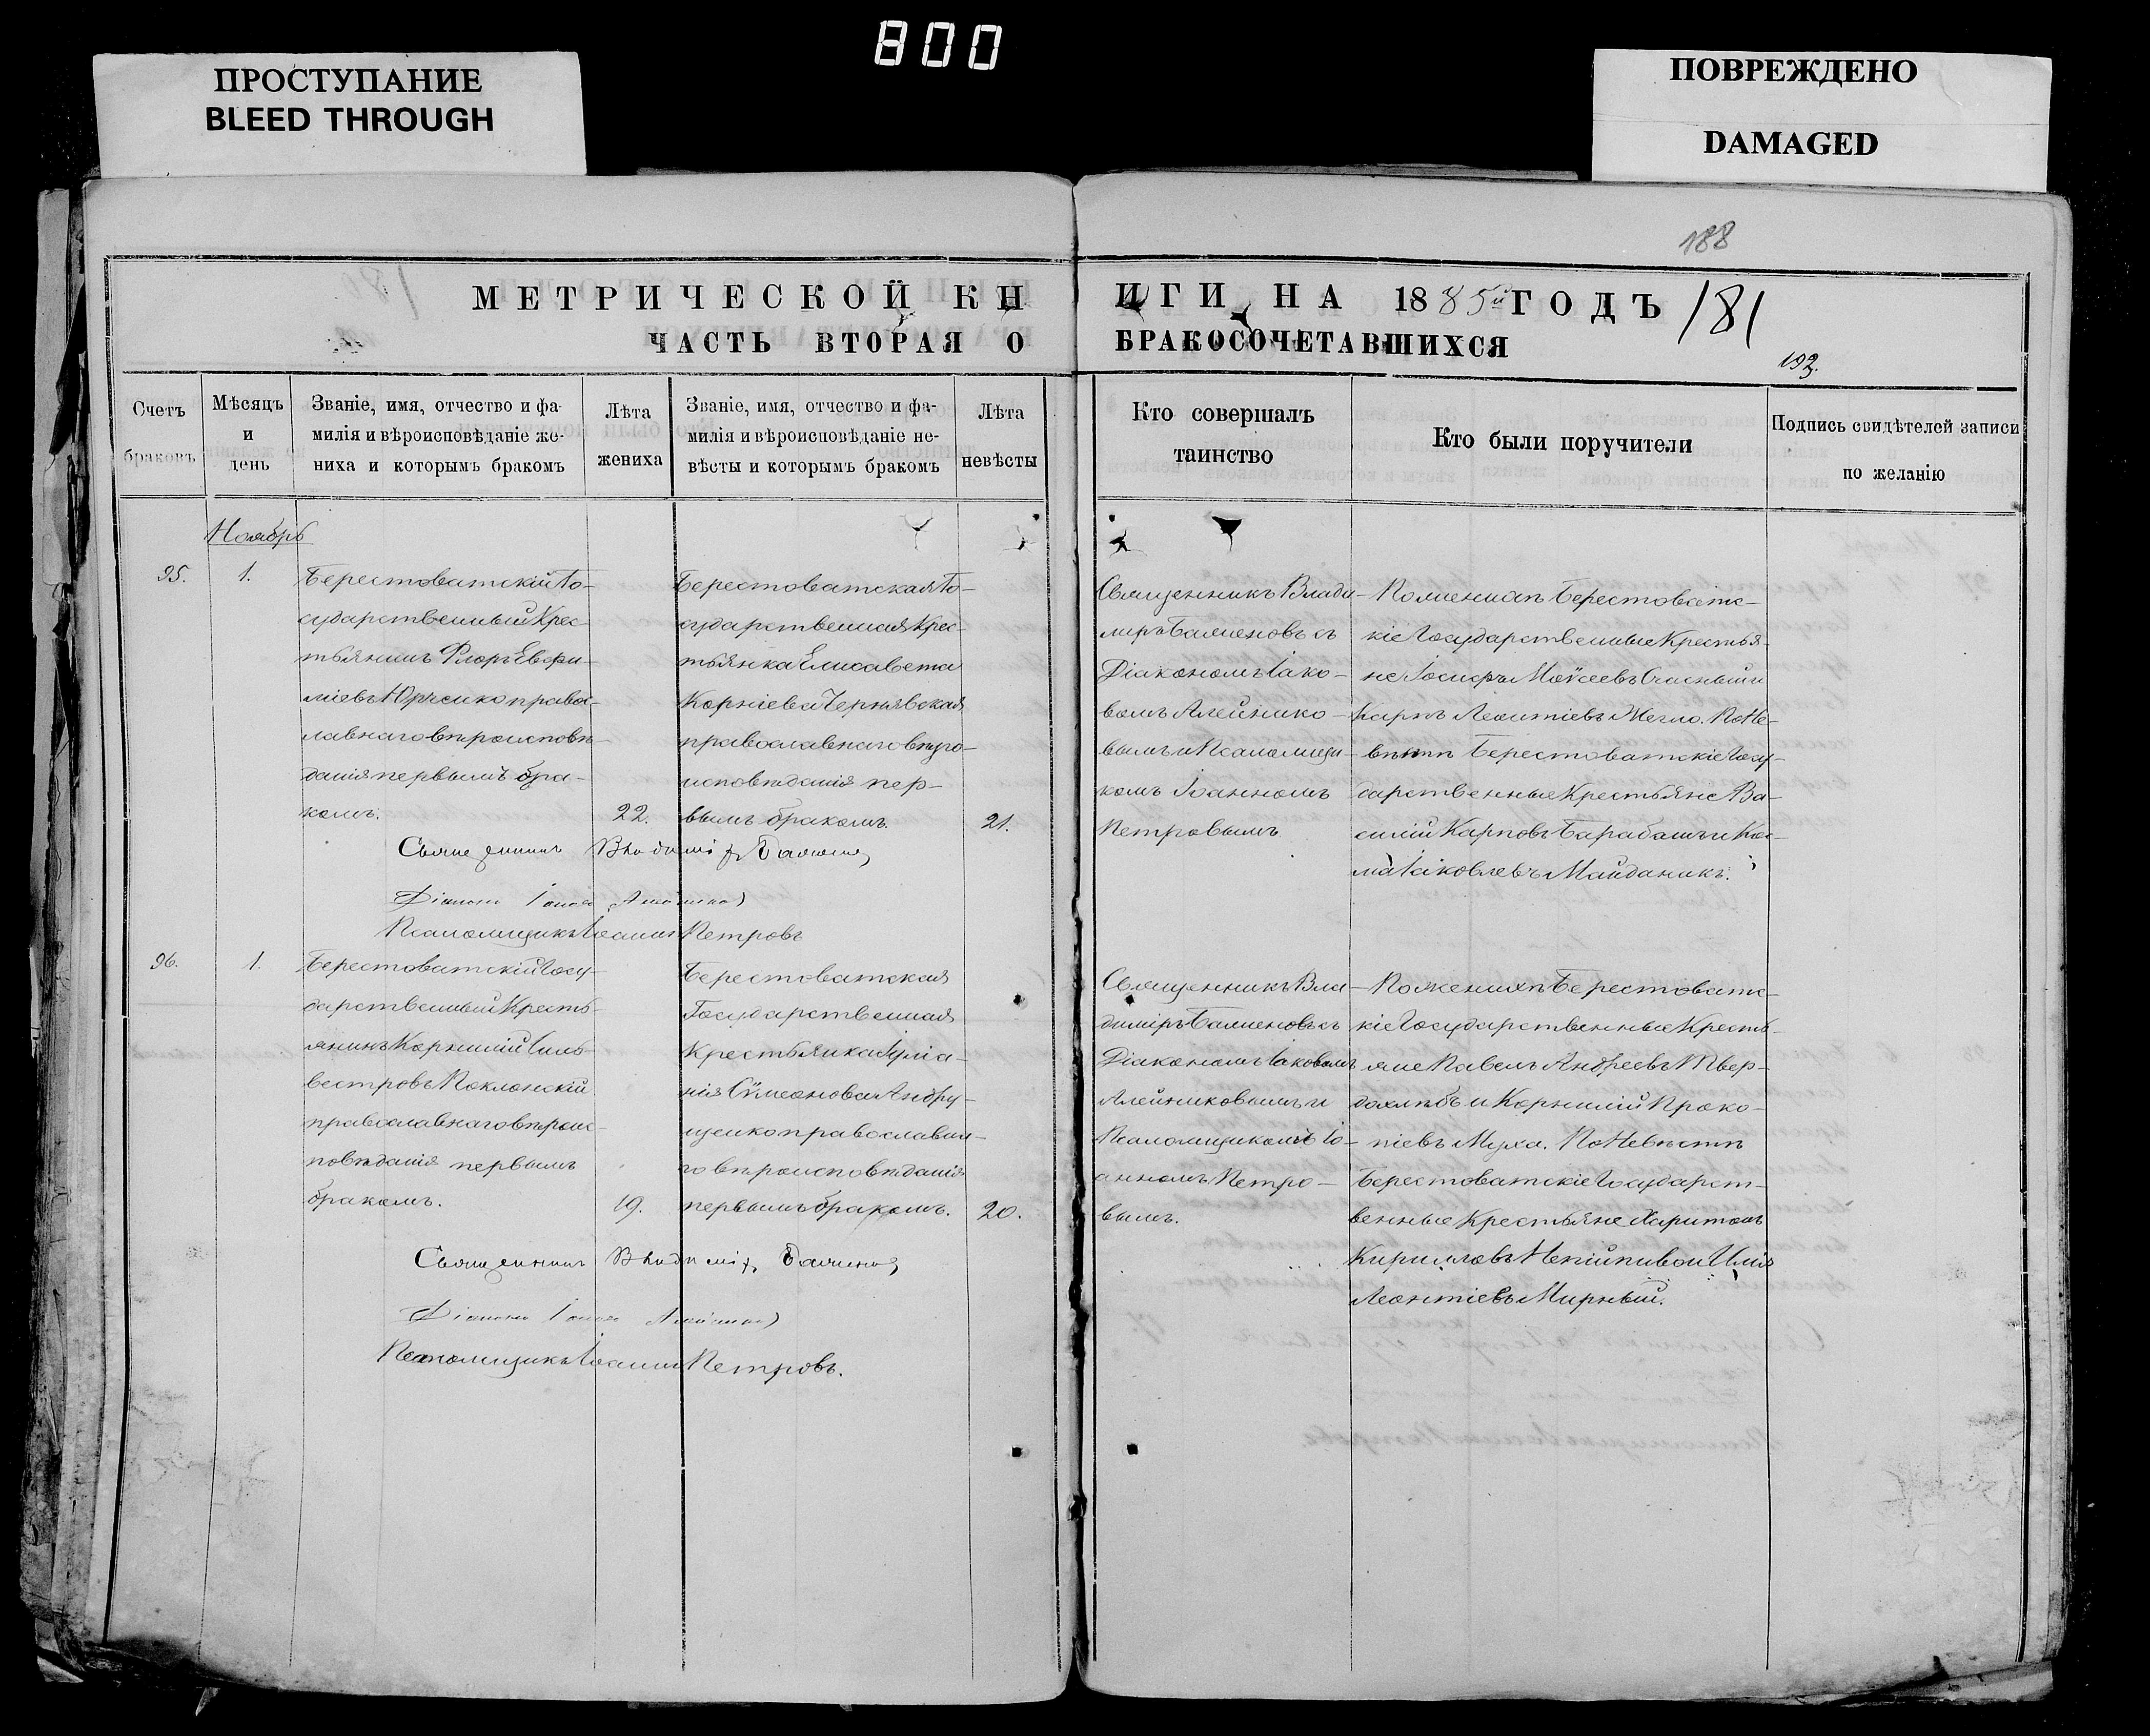 800
ПРОСТУПАНИЕ
BLEED THROUGH
ПОВРЕЖДЕНО
DAMAGED
188
МЕТРИЧЕСКОЙ КНИГИ НА 1885й ГОДЪ 181
ЧАСТЬ ВТОРАЯ О БРАКОСОЧЕТАВШИХСЯ
193.
Счетъ
браковъ
Мѣсяцъ
и
день
Званіе, имя, отчество и фа-
милія и вѣроисповѣданіе же-
ниха и которымъ бракомъ
Лѣта
жениха
Званіе, имя, отчество и фа-
милія и вѣроисповѣданіе не-
вѣсты и которымъ бракомъ
Лѣта
невѣсты
Кто совершалъ
таинство
Кто были поручители
Подпись свидѣтелей записи
по желанію
Ноябрь
95.
1.
Берестоватскій Го-
сударственный Крес-
тьянинъ Флоръ Евфи-
міевъ Юрченко правос-
лавнаго вѣроисповѣ-
данія первымъ бра-
комъ.
22.
Берестоватская Го-
сударственная Крес-
тьянка Елисавета
Корніева Чернявская
православнаго вѣро-
исповѣданія пер-
вымъ бракомъ.
21.
Священникъ Влади-
миръ Баженовъ съ
Діакономъ Іако-
вомъ Алейнико-
вымъ и Псаломщи-
комъ Іоанномъ
Петровымъ
По женихѣ Берестоватс-
кіе Государственные Крестья-
не Іосифъ Моѵсеевъ и
Карпъ Леонтіевъ Жегло. По Не-
вѣстѣ Берестоватскіе Госу-
дарственные Крестьяне Ва-
силій Карповъ Барабашъ и Кос-
ма Іаковлевъ Майданикъ.
Священникъ Владиміръ Баженовъ
Діаконъ Іаковъ Алейниковъ
Псаломщикъ Іоаннъ Петровъ
96.
1.
Берестоватскій Госу-
дарственный Кресть-
янинъ Корнилій Силь-
вестровъ Поклонскій
православнаго вѣроис-
повѣданія первымъ
бракомъ.
19.
Берестоватская
Государственная
Крестьянка Іуліа-
нія Сѵмеонова Андру-
щенко православна-
го вѣроисповѣданія
первымъ бракомъ.
20.
Священникъ Вла-
диміръ Баженовъ съ
Діакономъ Іаковомъ
Алейниковымъ и
Псаломщикомъ Іо-
анномъ Петро-
вымъ.
По женихѣ Берестоватс-
кіе Государственные Кресть-
яне Павелъ Андреевъ Твер-
дохлѣбъ и Корнилій Проко-
піевъ Муха. По Невѣстѣ
Берестоватскіе Государст-
венные Крестьяне Харитонъ
Кирилловъ Непійпиво и Илія
Леонтіевъ Мирный.
Священникъ Владиміръ Баженовъ
Діаконъ Іаковъ Алейниковъ
Псаломщикъ Іоаннъ Петровъ.